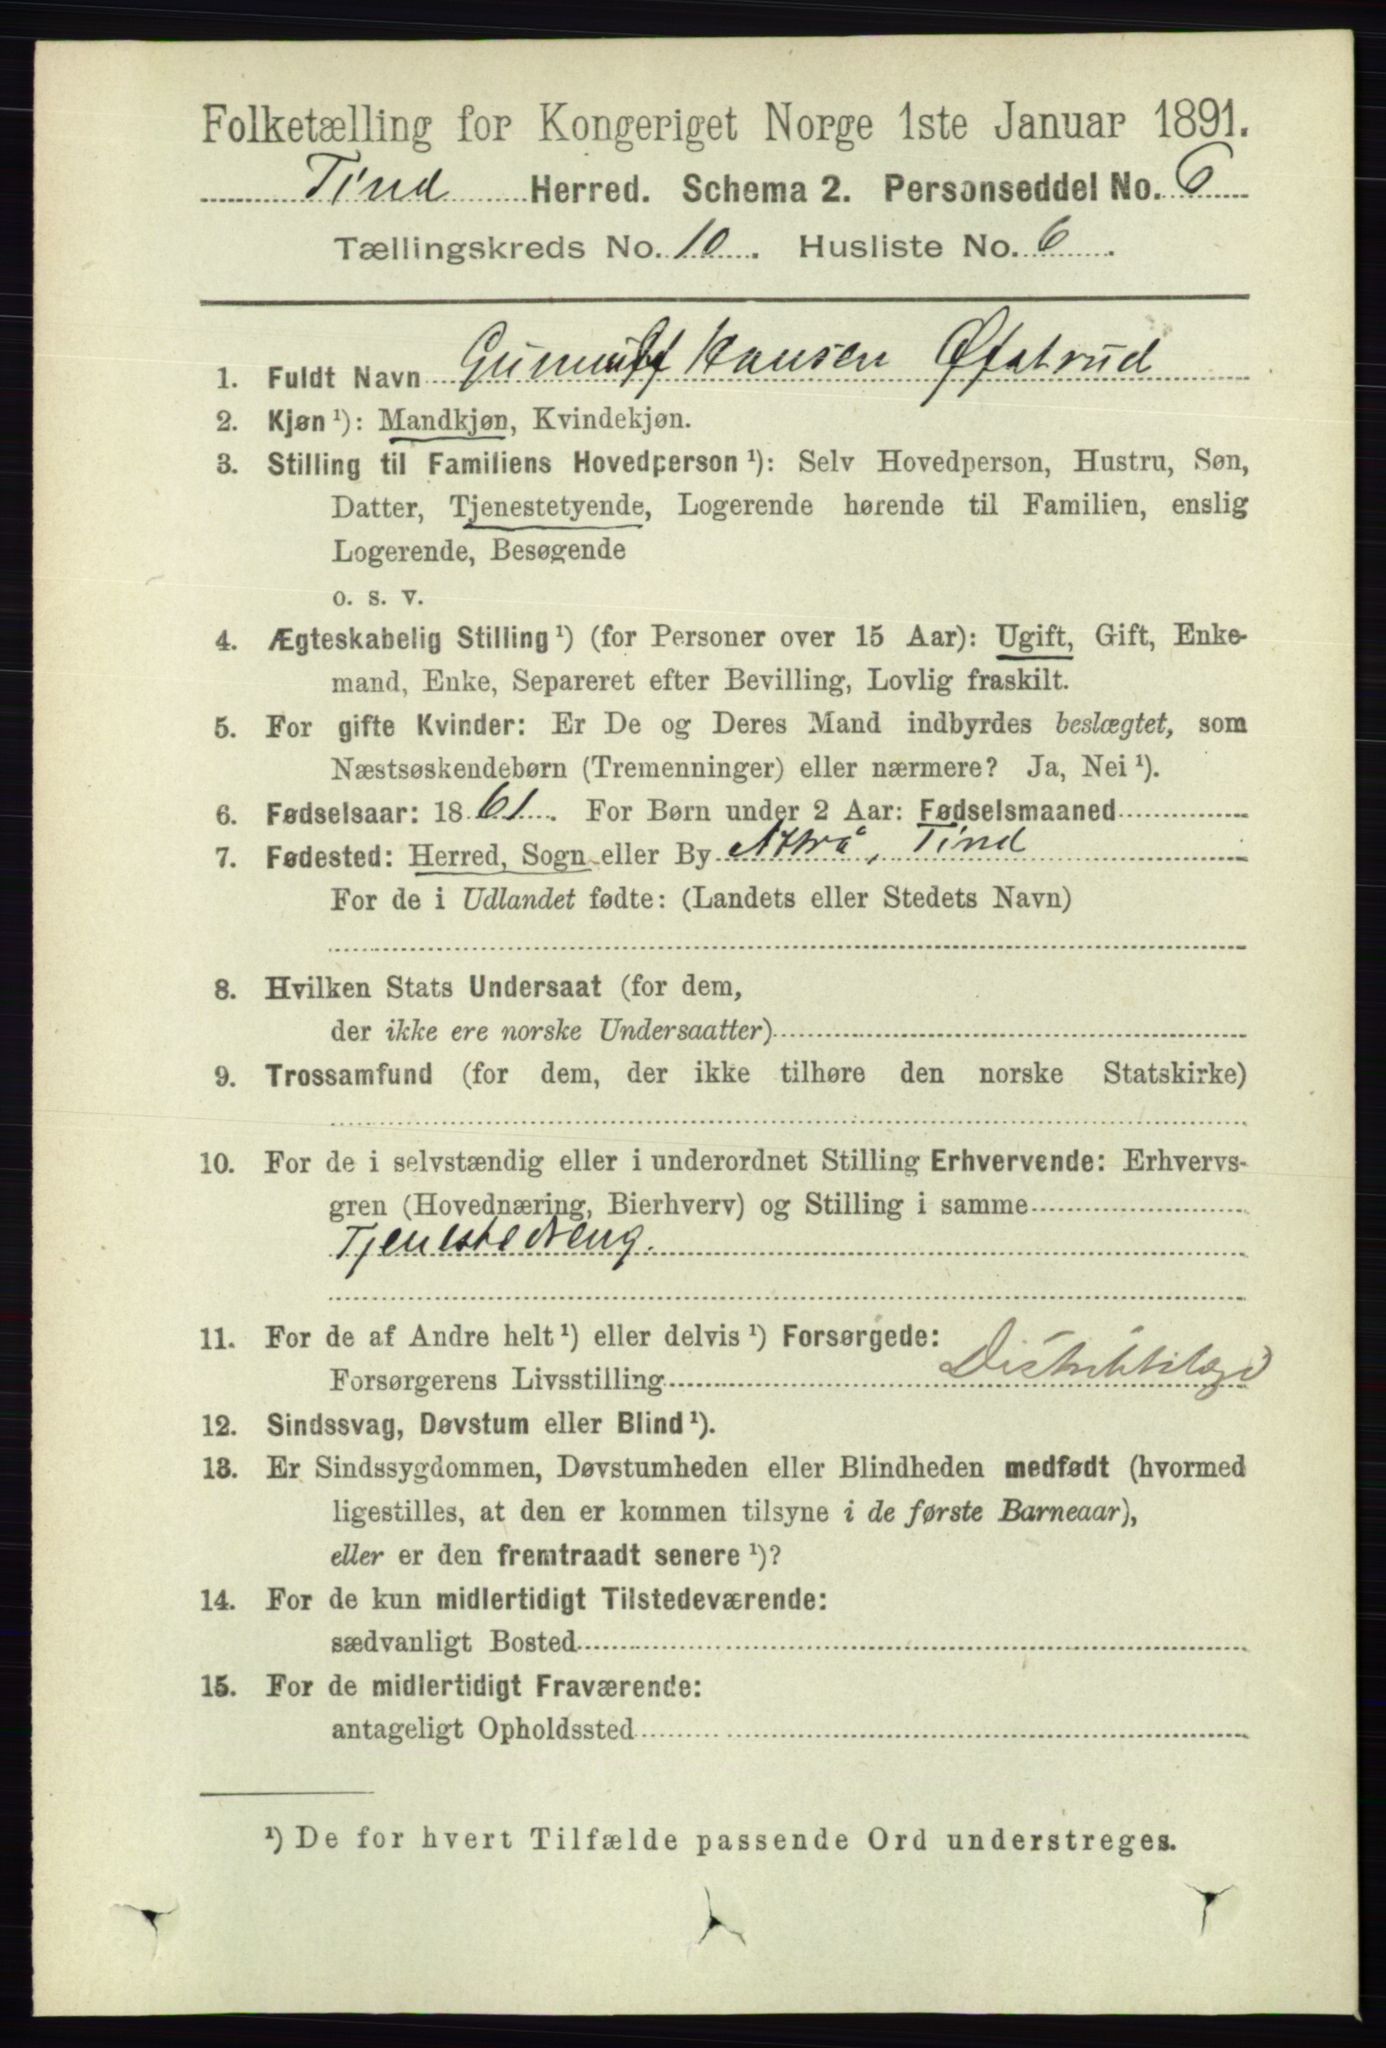 Folketælling for Kongeriget Norge 1ste Januar 1891.
Tind Herred. Schema 2. Personseddel No. 6
Tællingskreds No. 10. Husliste No. 6.
1. Fuldt Navn Gunnulf Hansen Øfstrud
2. Kjøn ¹): Mandkjøn, Kvindekjøn.
3. Stilling til Familiens Hovedperson ¹): Selv Hovedperson, Hustru, Søn,
Datter, Tjenestetyende, Logerende hørende til Familien, enslig
Logerende, Besøgende
o. s. v.
4. Ægteskabelig Stilling ¹) (for Personer over 15 Aar): Ugift, Gift, Enke-
mand, Enke, Separeret efter Bevilling, Lovlig fraskilt.
5. For gifte Kvinder: Er De og Deres Mand indbyrdes beslægtet, som
Næstsøskendebørn (Tremenninger) eller nærmere? Ja, Nei ¹).
6. Fødselsaar: 1861. For Børn under 2 Aar: Fødselsmaaned
7. Fødested: Herred, Sogn eller By Attrå, Tind
For de i Udlandet fødte: (Landets eller Stedets Navn)
8. Hvilken Stats Undersaat (for dem,
der ikke ere norske Undersaatter)
9. Trossamfund (for dem, der ikke tilhøre den norske Statskirke)
10. For de i selvstændig eller i underordnet Stilling Erhvervende: Erhvervs-
gren (Hovednæring, Bierhverv) og Stilling i samme
Tjenestedreng.
11. For de af Andre helt ¹) eller delvis ¹) Forsørgede:
Forsørgerens Livsstilling Distriktslæge
12. Sindssvag, Døvstum eller Blind ¹).
13. Er Sindssygdommen, Døvstumheden eller Blindheden medfødt (hvormed
ligestilles, at den er kommen tilsyne i de første Barneaar),
eller er den fremtraadt senere ¹)?
14. For de kun midlertidigt Tilstedeværende:
sædvanligt Bosted
15. For de midlertidigt Fraværende:
antageligt Opholdssted
¹) De for hvert Tilfælde passende Ord understreges.